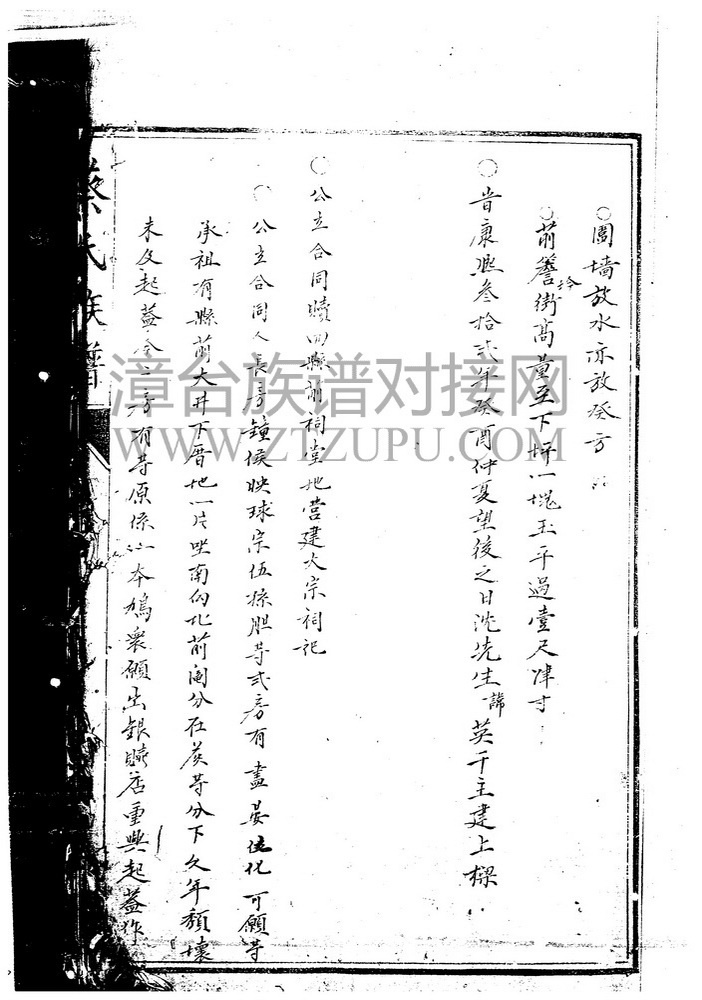 ○圍墻放水亦放癸方
○前簷拎衛高量至下坪一塊玉平過壹尺津寸
○昔康熙叁拾弍年癸酉仲夏望後之日沈先生諱英千主建上樑
○公立合同贖回縣前祠堂地营建大宗祠記
○公立合同人長房鐘侯映球宗伍捺胆等弍房有盡晏位化可願等
承祖有縣前大井下厝地一片坐南向北前鬮分在侯等分下久年頹壞
未及起蓋今二房有等原係一本鳩衆願出銀贖店重興起蓋作
蔡氏族譜
漳台族谱对接网
WWW.ZTZUPU.COM